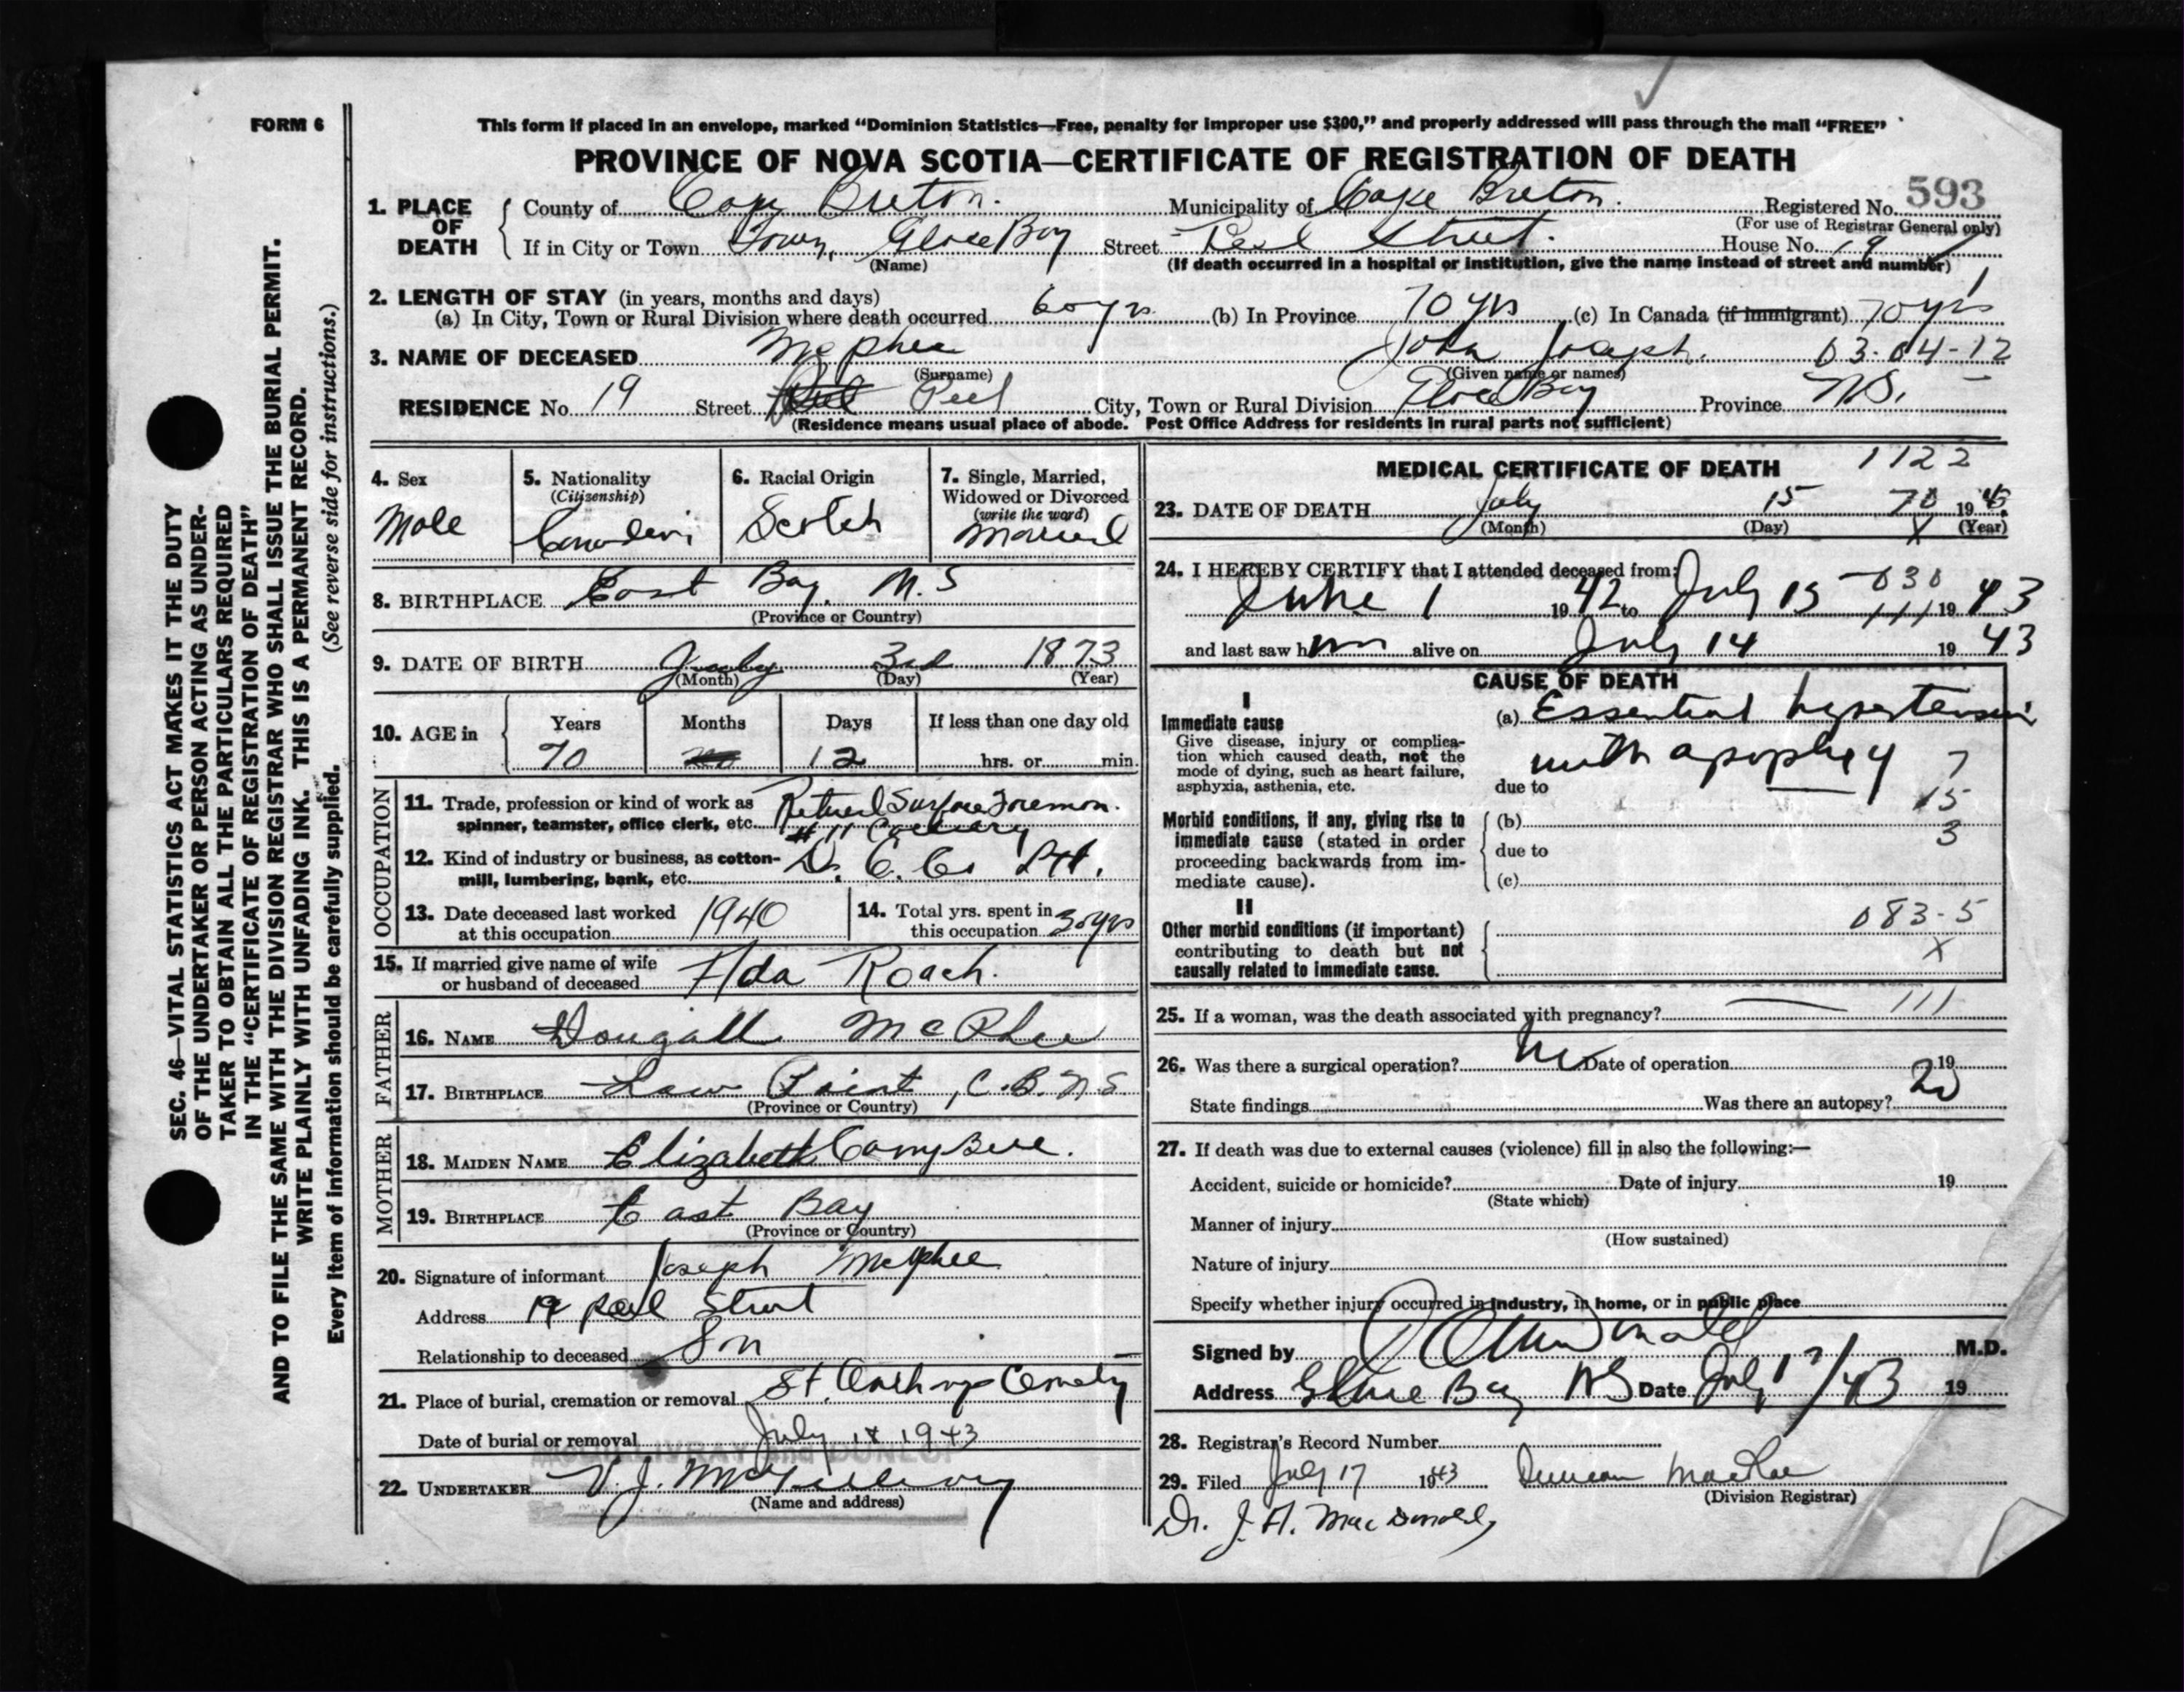 FORM 6
This form if placed in an envelope, marked "Dominion Statistics—Free, penalty for improper use $300," and properly addressed will pass through the mail "FREE"
PROVINCE OF NOVA SCOTIA—CERTIFICATE OF REGISTRATION OF DEATH
1. PLACE OF DEATH
County of Cape Breton. Municipality of Cape Breton. Registered No. 593
(For use of Registrar General only)
If in City or Town Town, Glace Bay Street Peel Street. House No. 19
(Name) (If death occurred in a hospital or institution, give the name instead of street and number)
2. LENGTH OF STAY (in years, months and days)
(a) In City, Town or Rural Division where death occurred 60 yrs. (b) In Province 70 yrs (c) In Canada (if immigrant) 70 yrs
3. NAME OF DECEASED McPhee John Joseph. 03-04-12
(Surname) (Given name or names)
RESIDENCE No. 19 Street Peel City, Town or Rural Division Glace Bay Province N.S.
(Residence means usual place of abode. Post Office Address for residents in rural parts not sufficient)
4. Sex
Male
5. Nationality
(Citizenship)
6. Racial Origin
Scotch
7. Single, Married,
Widowed or Divorced
(write the word)
Married
8. BIRTHPLACE East Bay, N.S
(Province or Country)
9. DATE OF BIRTH July 3rd 1873
(Month) (Day) (Year)
10. AGE in
Years Months Days If less than one day old
70 12 hrs. or min.
OCCUPATION
11. Trade, profession or kind of work as Retired Surface Foreman.
spinner, teamster, office clerk, etc. # 11 Colliery
12. Kind of industry or business, as cotton-
mill, lumbering, bank, etc. D. C. Co Ltd.
13. Date deceased last worked
at this occupation 1940
14. Total yrs. spent in
this occupation 30 yrs
15. If married give name of wife
or husband of deceased Ada Roach.
FATHER
16. NAME Dougall McPhee
17. BIRTHPLACE Point, C.B. N.S
(Province or Country)
MOTHER
18. MAIDEN NAME Elizabeth Campbell.
19. BIRTHPLACE East Bay
(Province or Country)
20. Signature of informant Joseph McPhee
Address 19 Peel Street
Relationship to deceased Son
21. Place of burial, cremation or removal St. Anthonys Cemetery
Date of burial or removal July 18 1943
22. UNDERTAKER V. J. McGillivray
(Name and address)
MEDICAL CERTIFICATE OF DEATH 1122
23. DATE OF DEATH July 15 70 1943.
(Month) (Day) X (Year)
24. I HEREBY CERTIFY that I attended deceased from: 030
June 1 1942 to July 15 111 1943
and last saw him alive on July 14 1943
CAUSE OF DEATH
I
Immediate cause
Give disease, injury or complica-
tion which caused death, not the
mode of dying, such as heart failure,
asphyxia, asthenia, etc.
(a) Essential hypertension
with apoplexy 7
due to
15
Morbid conditions, if any, giving rise to
immediate cause (stated in order
proceeding backwards from im-
mediate cause).
(b)
due to 3
(c)
II
Other morbid conditions (if important)
contributing to death but not
causally related to immediate cause.
083-5
X
25. If a woman, was the death associated with pregnancy? — 111
26. Was there a surgical operation? No Date of operation 19
State findings Was there an autopsy? no
27. If death was due to external causes (violence) fill in also the following:—
Accident, suicide or homicide? Date of injury 19
(State which)
Manner of injury
(How sustained)
Nature of injury
Specify whether injury occurred in industry, in home, or in public place
Signed by MacDonald M.D.
Address Glace Bay NS Date July 17/43 19
28. Registrar's Record Number
29. Filed July 17 1943 Duncan MacRae
(Division Registrar)
Dr. J. A. MacDonald,
SEC. 46—VITAL STATISTICS ACT MAKES IT THE DUTY
OF THE UNDERTAKER OR PERSON ACTING AS UNDER-
TAKER TO OBTAIN ALL THE PARTICULARS REQUIRED
IN THE "CERTIFICATE OF REGISTRATION OF DEATH"
AND TO FILE THE SAME WITH THE DIVISION REGISTRAR WHO SHALL ISSUE THE BURIAL PERMIT.
WRITE PLAINLY WITH UNFADING INK. THIS IS A PERMANENT RECORD.
Every item of information should be carefully supplied. (See reverse side for instructions.)